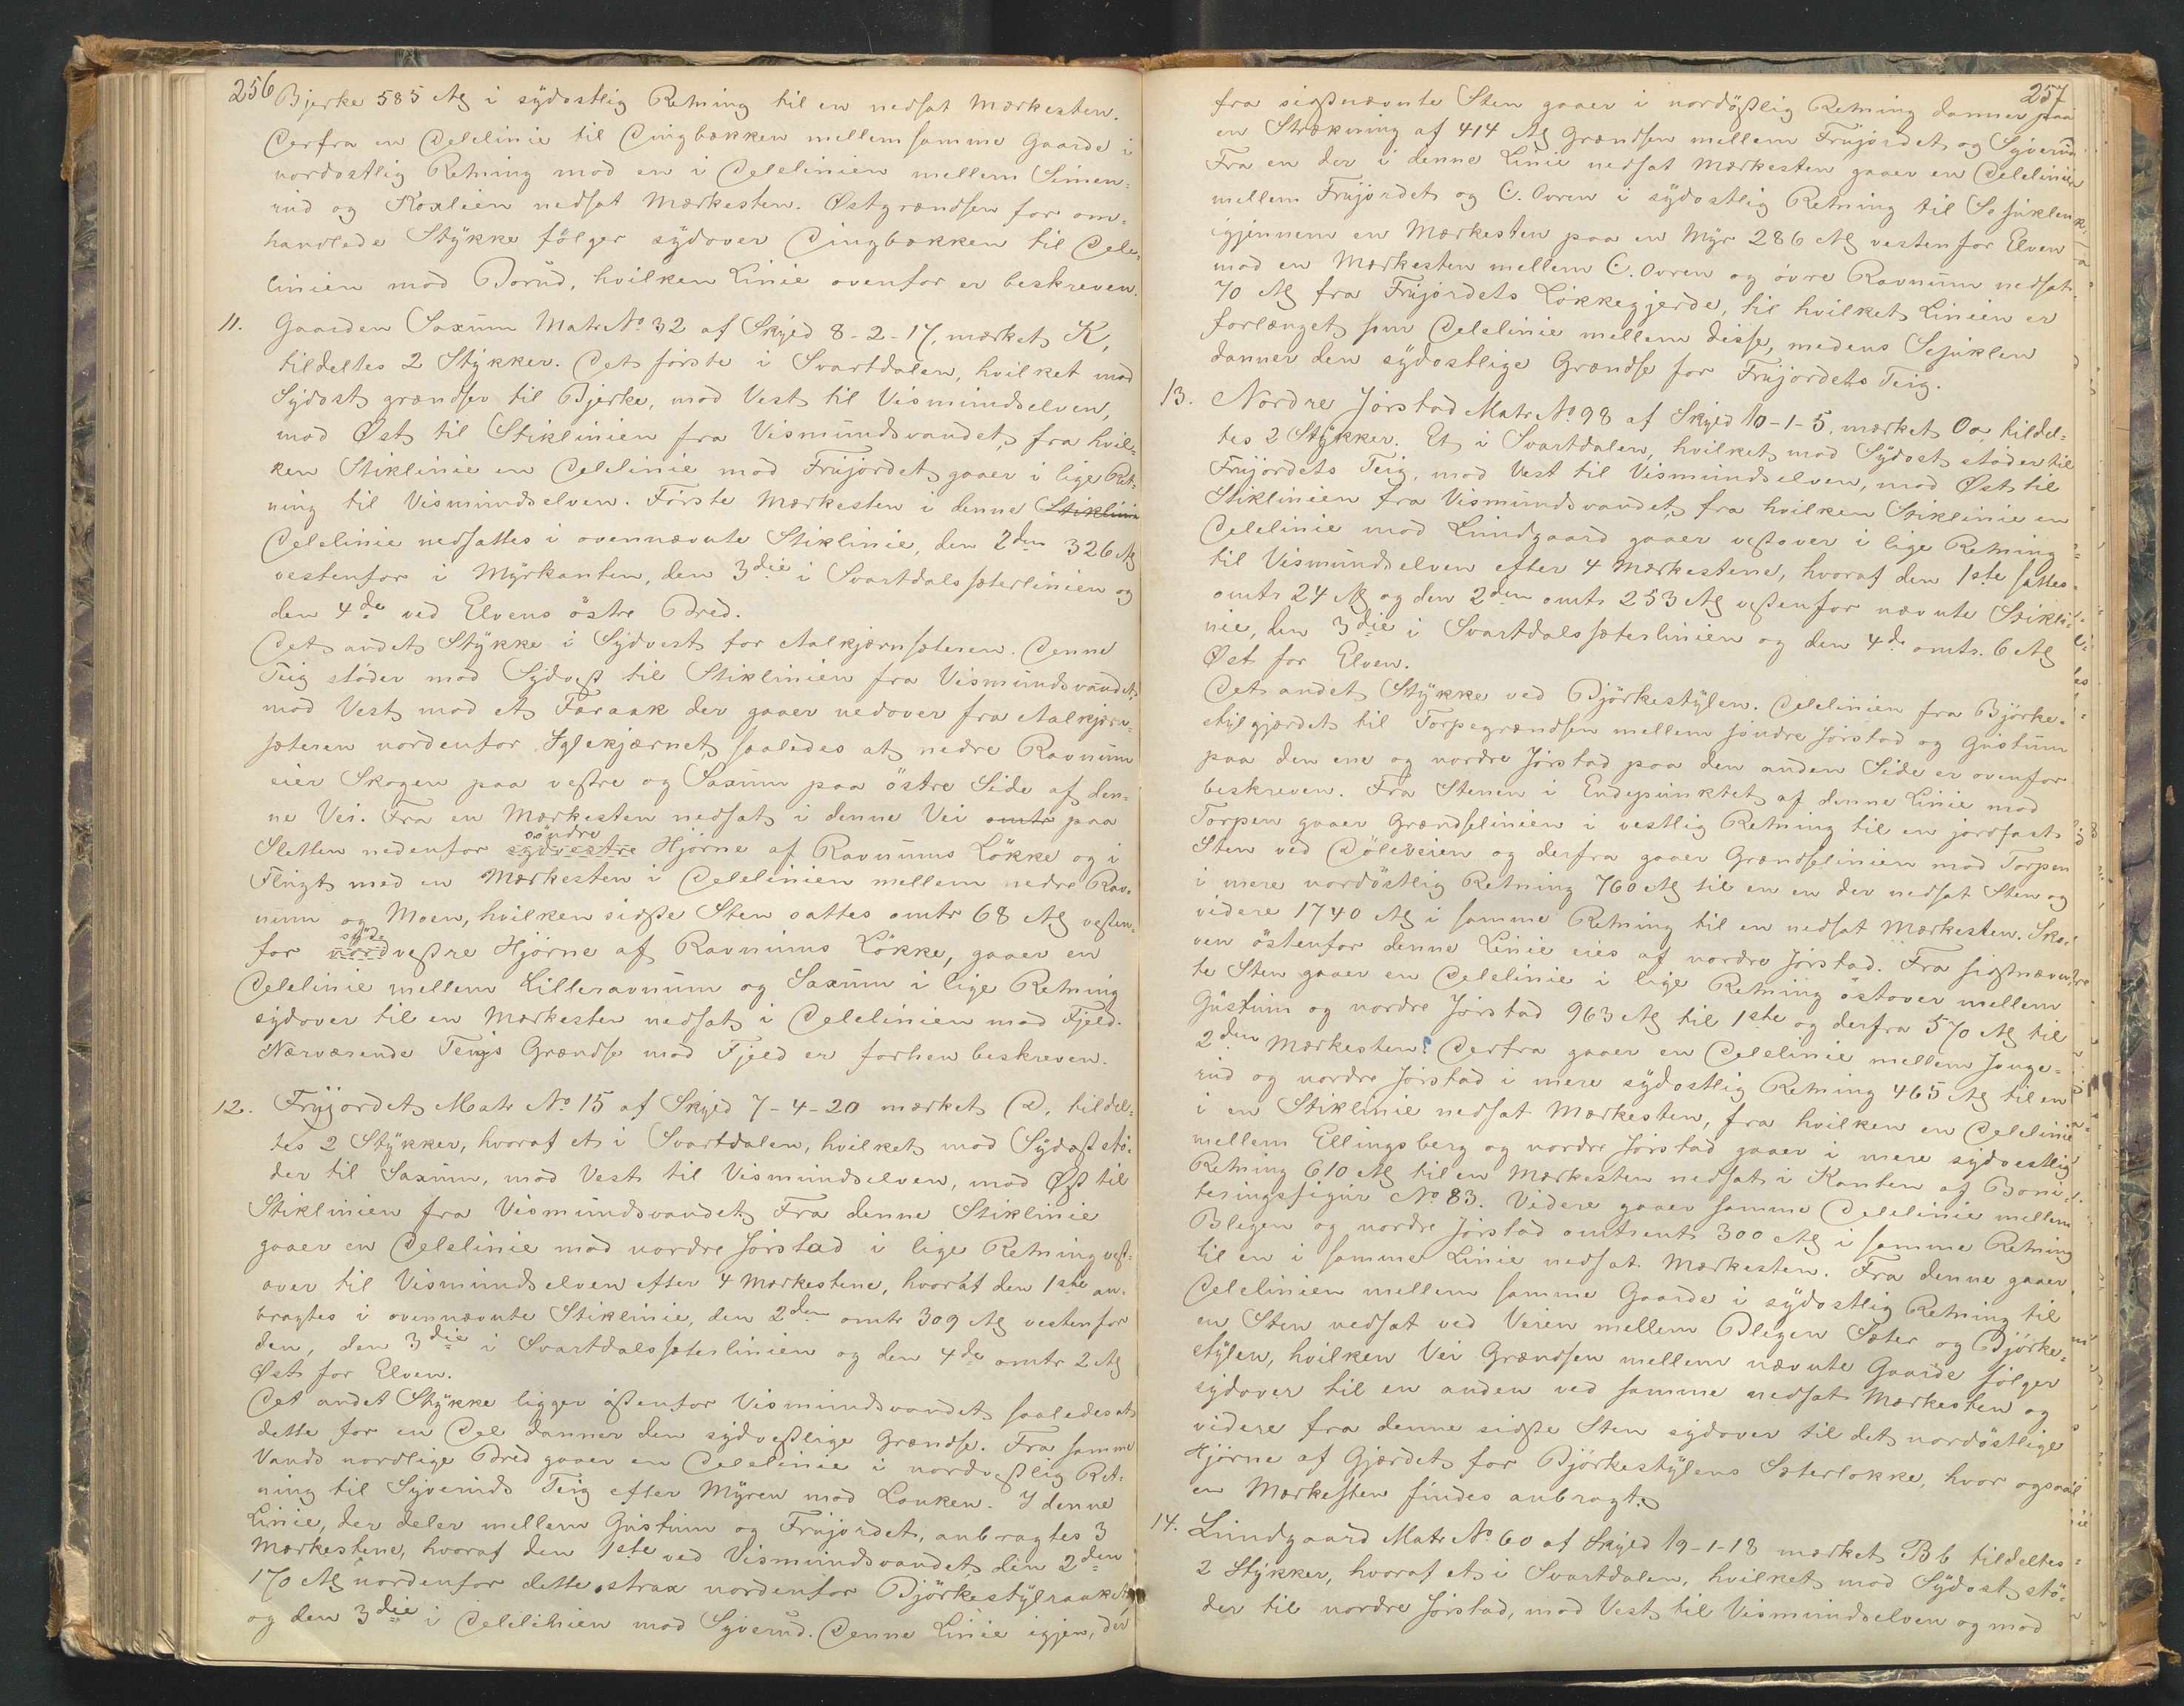 256
Bjerke 585 Al i sydostlig Retning til en nedsat Mærkesten.
Derfra en Delelinie til Dingbækken mellem samme Gaarde i
nordostlig Retning mod en i Delelinien mellem Simen-
rud og Koxlien nedsat Mærkesten. Østgrændsen for om-
handlede Stykke følger sydover Dingbækken til Dele-
linien mod Dorud, hvilken Linie ovenfor er beskreven.
11. Gaarden Saxum Matr No 32 af Skyld 8-2-17, mærket K,
tildeltes 2 Stykker. Det første i Svartdalen, hvilket mod
Sydost grændser til Bjerke, mod Vest til Vismundselven,
mod Øst til Stiklinien fra Vismundsvandet, fra hvil-
ken Stiklinie en Delelinie mod Frujordet gaaer i lige Ret-
ning til Vismundselven. Første Mærkesten i denne Stiklinie
Delelinie nedsattes i ovennævnte Stiklinie, den 2den 326 Al
vestenfor i Myrkanten, den 3die i Svartdalssæterlinien og
den 4de ved Elvens østre Bred.
Det andet Stykke i Sydvest for Aalkjærnsæteren. Denne
Teig støder mod Sydvest til Stiklinien fra Vismundsvandet,
mod Vest mod et Faraak der gaaer nedover fra Aalkjærn-
sæteren nordenfor Iglekjærnet, saaledes at nedre Ravnum
eier Skogen paa vestre og Saxum paa østre Side af den-
ne Vei. Fra en Mærkesten nedsat i denne Vei omtr paa
søndre
Sletten nedenfor sydvestre Hjørne af Ravnums Løkke og i
Flugt med en Mærkesten i Delelinien mellem nedre Rav-
num og Moen, hvilken sidste Sten sattes omtr 68 Al vesten-
syd-
for nordvestre Hjørne af Ravnums Løkke, gaaer en
Delelinie mellem Lilleravnum og Saxum i lige Retning
sydover til en Mærkesten nedsat i Delelinien mod Fjeld.
Nærværende Teigs Grændse mod Fjeld er forhen beskreven.
12. Frujordet Matr No 15 af Skyld 7-4-20 mærket D, tildel-
tes 2 Stykker, hvoraf et i Svartdalen, hvilket mod Sydost stø-
der til Saxum, mod Vest til Vismundselven, mod Øst til
Stiklinien fra Vismundsvandet. Fra denne Stiklinie
gaaer en Delelinie mod nordre Jørstad i lige Retning vest-
over til Vismundselven efter 4 Mærkestene, hvoraf den 1ste an-
bragtes i ovennævnte Stiklinie, den 2den omtr 309 Al vestenfor
den, den 3die i Svartdalssæterlinien og den 4de omtr 2 Al
Øst for Elven.
Det andet Stykke ligger østenfor Vismundsvandet saaledes at
dette for en Del danner den sydvestlige Grændse. Fra samme
Vands nordlige Bred gaaer en Delelinie i nordvestlig Ret-
ning til Syveruds Teig efter Myren mod Lonken. I denne
Linie, der deler mellem Gustum og Frujordet, anbragtes 3
Mærkestene, hvoraf den 1ste ved Vismundsvandet, den 2den
170 Al nordenfor dette, strax nordenfor Bjørkestylraaket,
og den 3die i Delelinien mod Syverud. Denne Linie igjen, der
257
fra sidstnævnte Sten gaaer i nordøstlig Retning danner paa
en Strækning af 414 Al Grændsen mellem Frujordet og Syverud
Fra en der i denne Linie nedsat Mærkesten gaaer en Delelinie
mellem Frujordet og C. Ovren i sydostlig Retning til Sejuklen
igjennem en Mærkesten paa en Myr 286 Al vestenfor Elven
mod en Mærkesten mellem C. Ovren og øvre Ravnum nedsat
70 Al fra Frujordets Løkkegjerde, til hvilket Linien er
forlænget som Delelinie mellem disse, medens Sejuklen
danner den sydostlige Grændse for Frujordets Teig.
13. Nordre Jørstad Matr No 98 af Skyld 10-1-5, mærket Oa, tildel-
tes 2 Stykker. Et i Svartdalen, hvilket mod Sydost støder til
Frujordets Teig, mod Vest til Vismundselven, mod Øst til
Stiklinien fra Vismundsvandet, fra hvilken Stiklinie en
Delelinie mod Lundgaard gaaer vestover i lige Retning
til Vismundselven efter 4 Mærkestene, hvoraf den 1ste sattes
omtr 24 Al og den 2den omtr 253 Al vestenfor nævnte Stikli-
nie, den 3die i Svartdalssæterlinien og den 4de omtr. 6 Al
Øst for Elven.
Det andet Stykke ved Bjørkestylen. Delelinien fra Bjørke-
stylgjærdet til Torpegrændsen mellem søndre Jørstad og Gustum
paa den ene og nordre Jørstad paa den anden Side er ovenfor
beskreven. Fra Stenen i Endepunktet af denne Linie mod
Torpen gaaer Grændselinien i vestlig Retning til en jordfast
Sten ved Døleveien og derfra gaaer Grændselinien mod Torpen
i mere nordøstlig Retning 760 Al til en en der nedsat Sten og
videre 1740 Al i samme Retning til en nedsat Mærkesten. Sko-
ven østenfor denne Linie eies af nordre Jørstad. Fra sidstnævn-
te Sten gaaer en Delelinie i lige Retning østover mellem
Gustum og nordre Jørstad 963 Al til 1ste og derfra 570 Al til
2den Mærkesten. Derfra gaaer en Delelinie mellem Jonge-
rud og nordre Jørstad i mere sydostlig Retning 465 Al til en
i en Stiklinie nedsat Mærkesten, fra hvilken en Delelinie
mellem Ellingsberg og nordre Jørstad gaaer i mere sydvestlig
Retning 610 Al til en Mærkesten nedsat i Kanten af Boni-
teringsfigur No 83. Videre gaaer samme Delelinie mellem
Blegen og nordre Jørstad omtrent 300 Al i samme Retning
til en i samme Linie nedsat Mærkesten. Fra denne gaaer
Delelinien mellem samme Gaarde i sydostlig Retning til
en Sten nedsat ved Veien mellem Blegen Sæter og Bjørke-
stylen, hvilken Vei Grændsen mellem nævnte Gaarde følger
sydover til en anden ved samme nedsat Mærkesten og
videre fra denne sidste Sten sydover til det nordøstlige
Hjørne af Gjærdet for Bjørkestylens Sæterløkke, hvor ogsaa
en Mærkesten findes anbragt.
14. Lundgaard Matr No 60 af Skyld 19-1-18 mærket Bb tildeltes
2 Stykker, hvoraf et i Svartdalen, hvilket mod Sydost stø-
der til nordre Jørstad, mod Vest til Vismundselven og mod